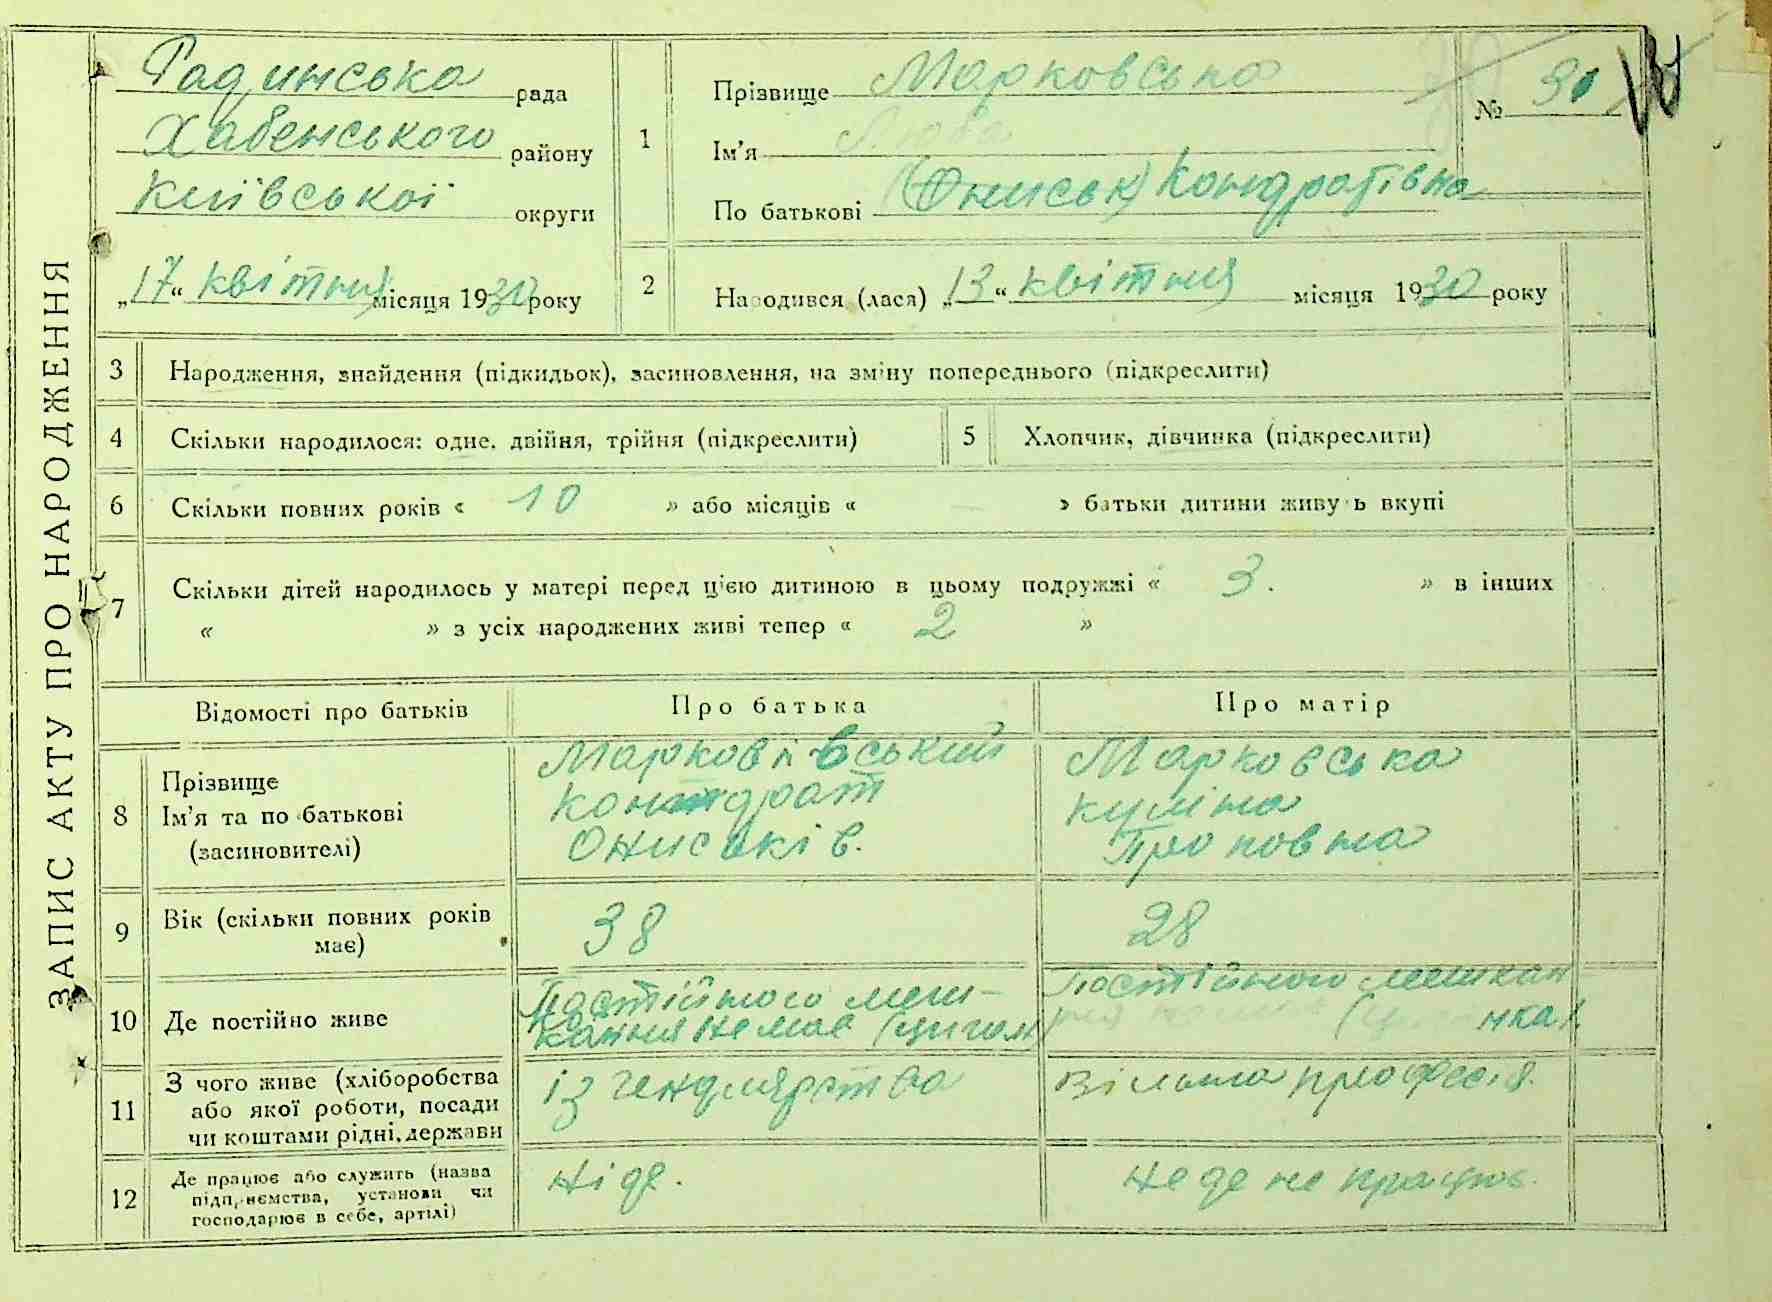 ЗАПИС АКТУ ПРО НАРОДЖЕННЯ
Радинська рада
Хабенського району
Київської округи
„17“ квітня місяця 1930 року
1
Прізвище Марковська
Ім’я Люба
По батькові (Ониськ) Кондратівна
№ 30
2
Народився (лася) „13“ квітня місяця 1930 року
3 Народження, знайдення (підкидьок), засиновлення, на зміну попереднього (підкреслити)
4 Скільки народилося: одне, двійня, трійня (підкреслити)
5 Хлопчик, дівчинка (підкреслити)
6 Скільки повних років « 10 » або місяців « — » батьки дитини живуть вкупі
7 Скільки дітей народилось у матері перед цією дитиною в цьому подружжі « 3. » в інших
« » з усіх народжених живі тепер « 2 »
Відомості про батьків Про батька Про матір
8
Прізвище
Ім’я та по батькові
(засиновителі)
Марковський
Кондрат
Ониськів.
Марковська
Куліна
Проповна
9 Вік (скільки повних років
має)
38
28
10 Де постійно живе
Постійного меш-
кання немає (циган
Постійного мешкан
нка).
11
З чого живе (хліборобства
або якої роботи, посади
чи коштами рідні, держави
із гендлярства
Вільна професія.
12
Де працює або служить (назва
підприємства, установи чи
господарює в себе, артілі)
Ніде.
Не де не працює.